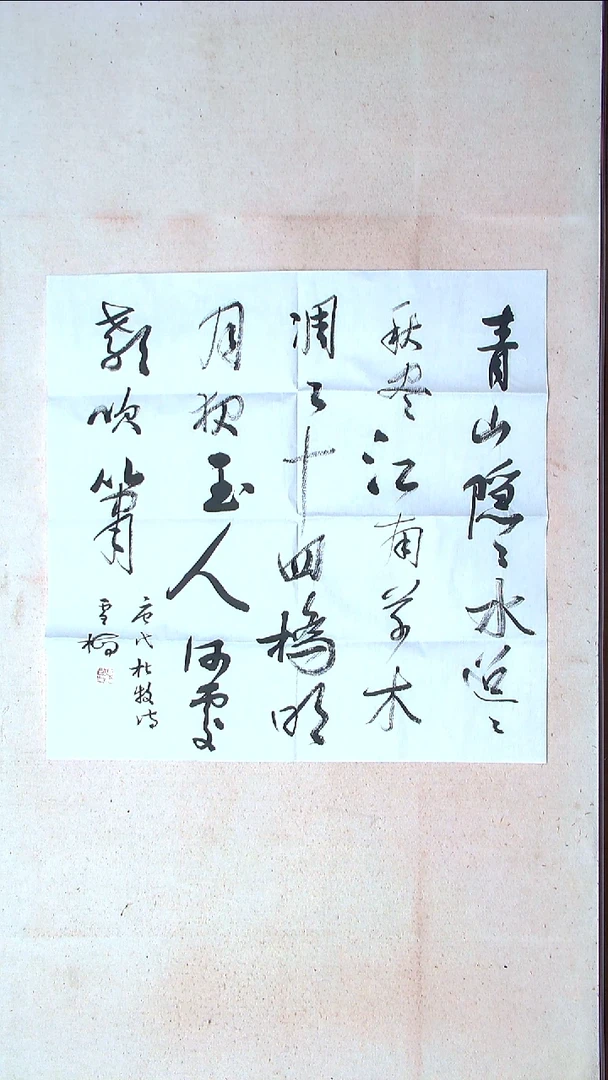 青山隐〻水迢〻
秋尽江南草木
凋二十四橋明
月夜玉人何處
教吹簫
唐代杜牧诗
雪